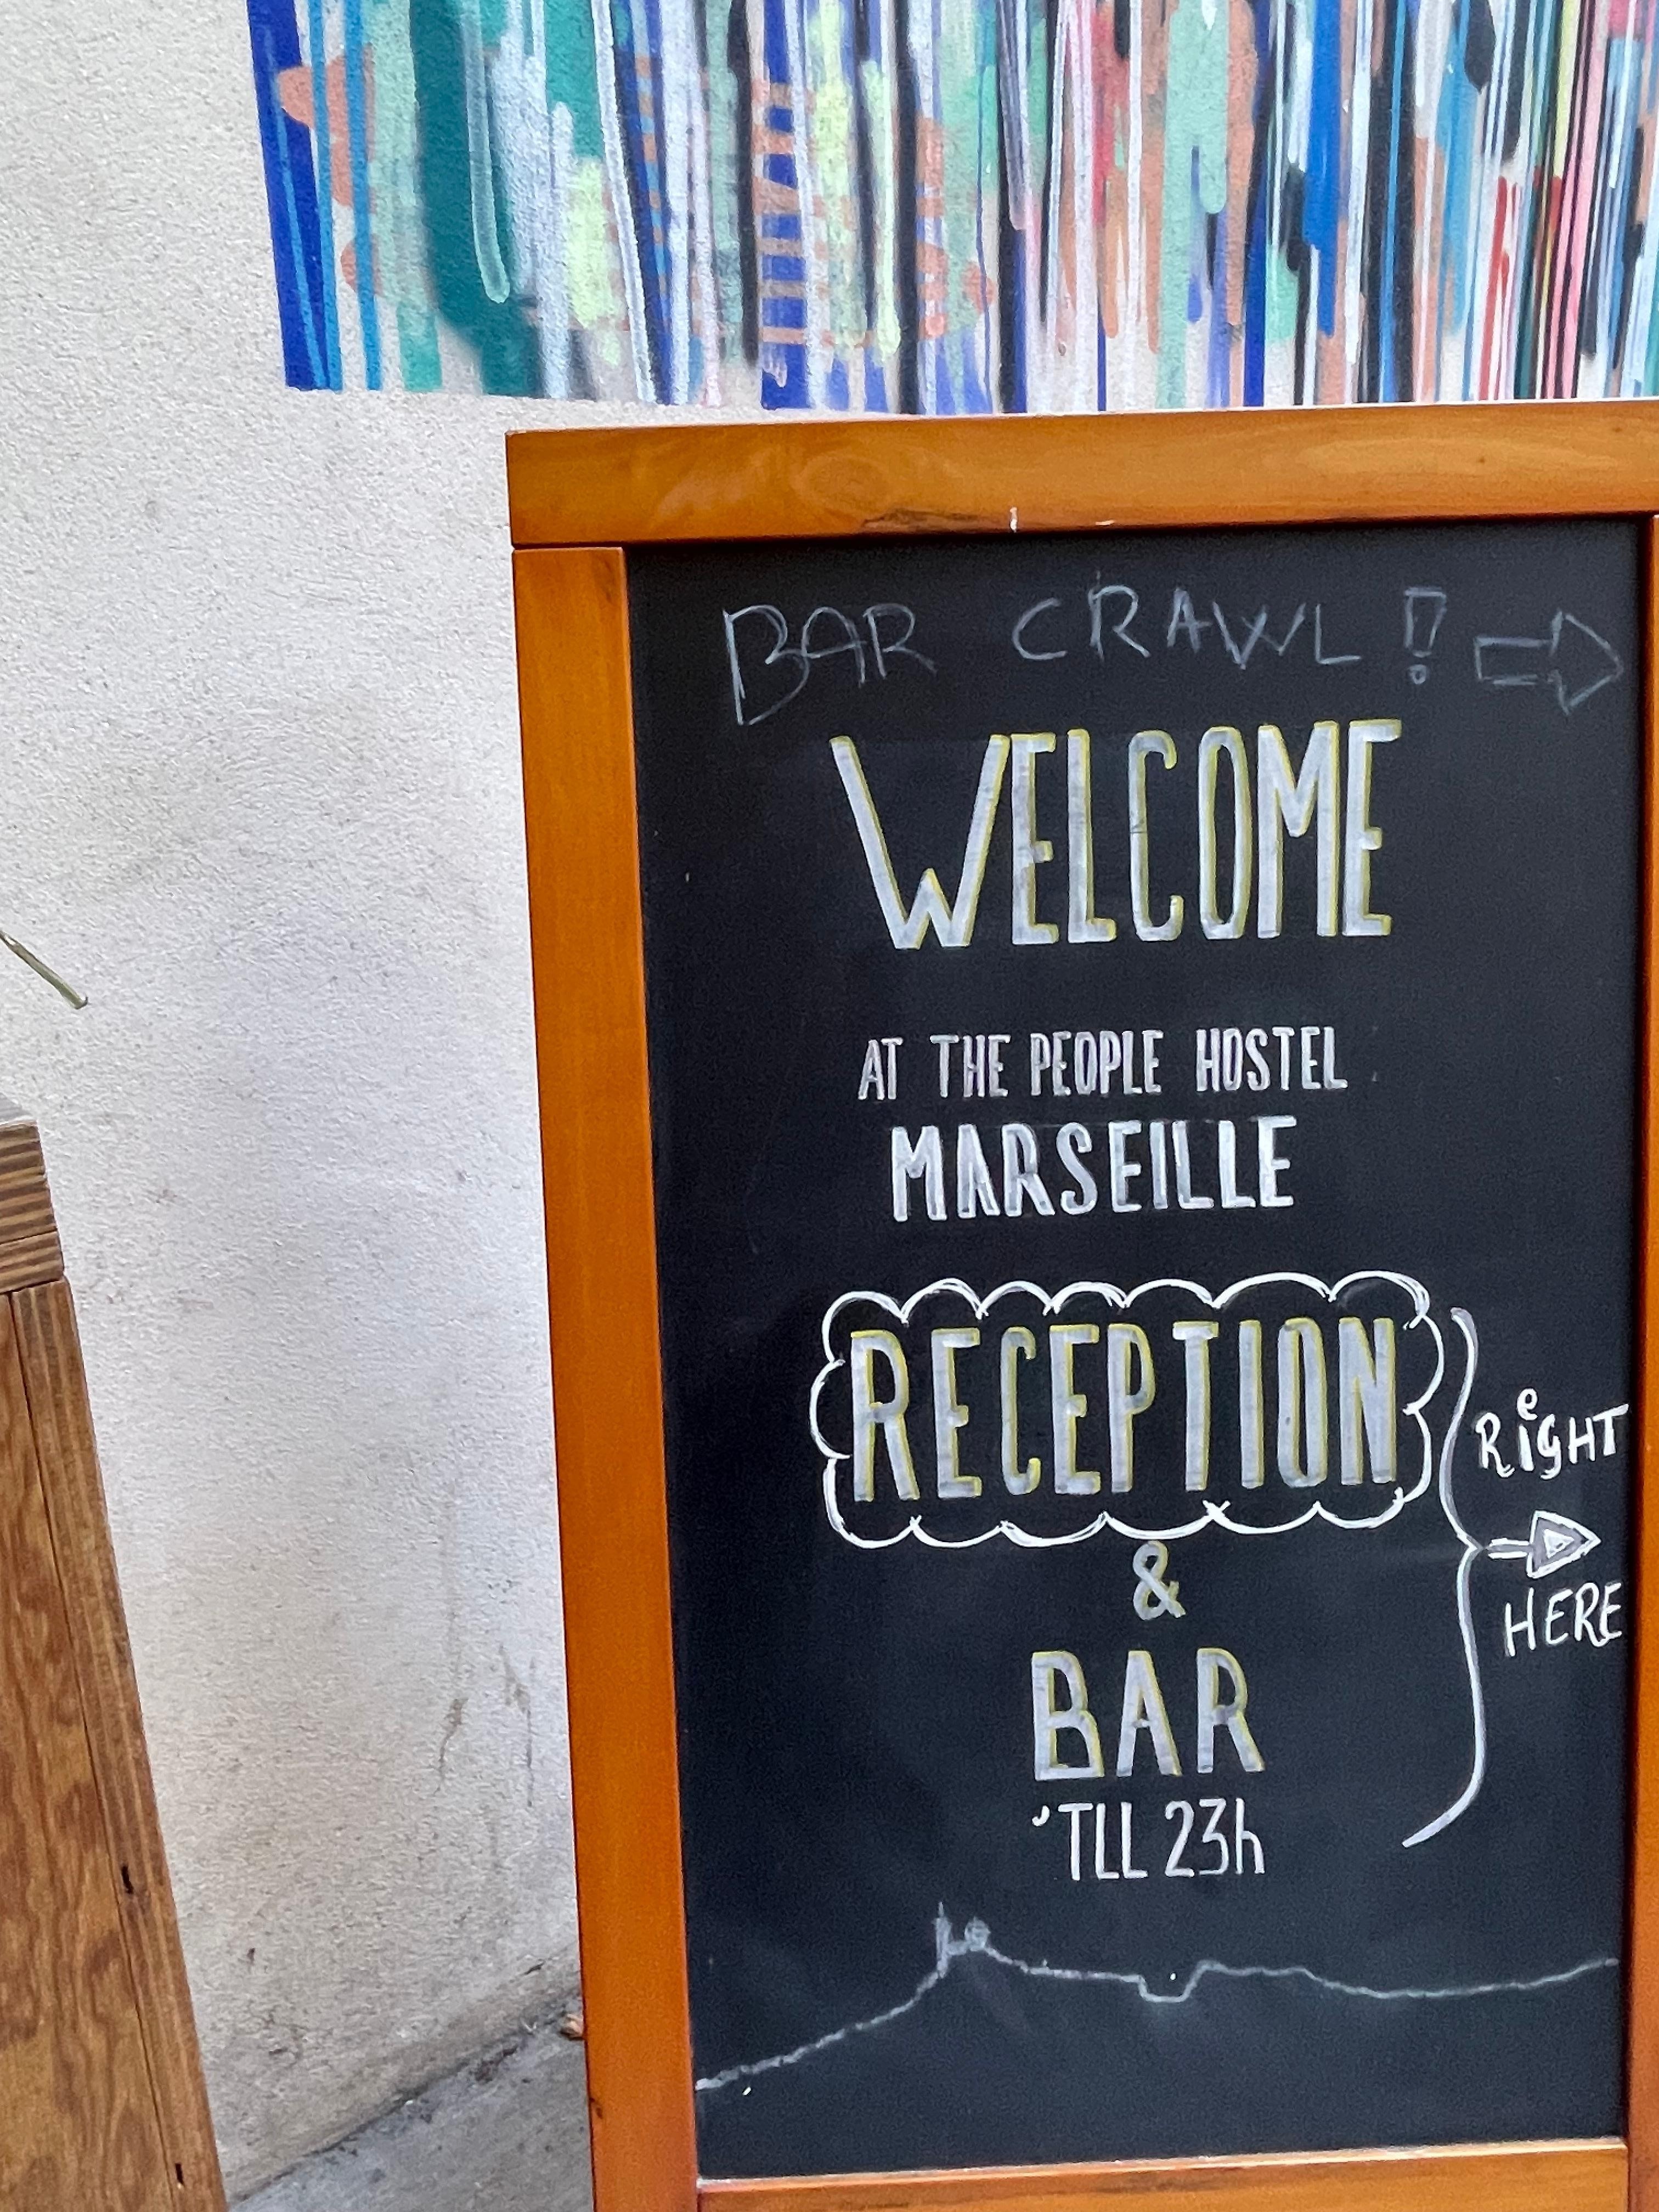 BAR CRAWL!
WELCOME
AT THE PEOPLE HOSTEL
MARSEILLE
RECEPTION
&
BAR
'TLL 23h
RiGHT
HERE